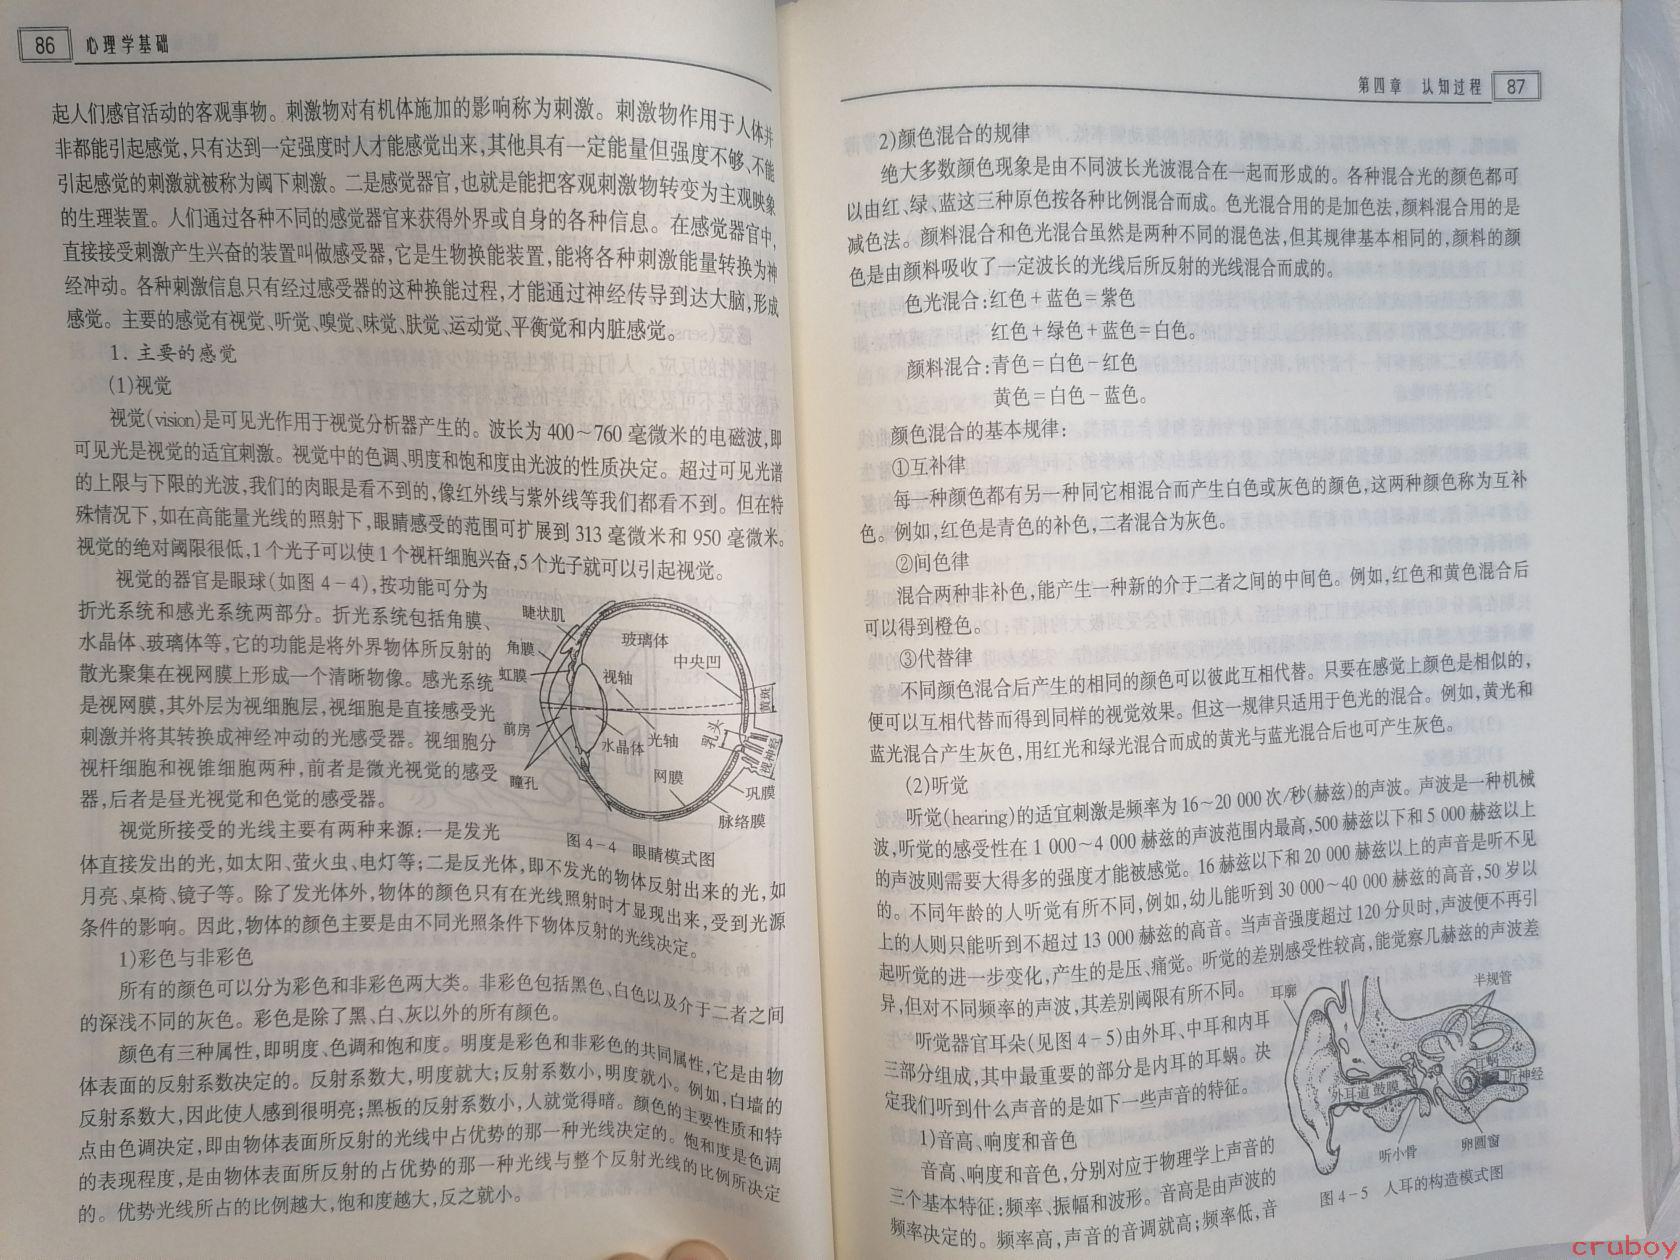 86 心理学基础
起人们感官活动的客观事物。刺激物对有机体施加的影响称为刺激。刺激物作用于人体并
非都能引起感觉,只有达到一定强度时人才能感觉出来,其他具有一定能量但强度不够、不能
引起感觉的刺激就被称为阈下刺激。二是感觉器官,也就是能把客观刺激物转变为主观映象
的生理装置。人们通过各种不同的感觉器官来获得外界或自身的各种信息。在感觉器官中,
直接接受刺激产生兴奋的装置叫做感受器,它是生物换能装置,能将各种刺激能量转换为神
经冲动。各种刺激信息只有经过感受器的这种换能过程,才能通过神经传导到达大脑,形成
感觉。主要的感觉有视觉、听觉、嗅觉、味觉、肤觉、运动觉、平衡觉和内脏感觉。
1. 主要的感觉
(1)视觉
视觉(vision)是可见光作用于视觉分析器产生的。波长为400~760毫微米的电磁波,即
可见光是视觉的适宜刺激。视觉中的色调、明度和饱和度由光波的性质决定。超过可见光谱
的上限与下限的光波,我们的肉眼是看不到的,像红外线与紫外线等我们都看不到。但在特
殊情况下,如在高能量光线的照射下,眼睛感受的范围可扩展到313毫微米和950毫微米。
视觉的绝对阈限很低,1个光子可以使1个视杆细胞兴奋,5个光子就可以引起视觉。
视觉的器官是眼球(如图4-4),按功能可分为
折光系统和感光系统两部分。折光系统包括角膜、
水晶体、玻璃体等,它的功能是将外界物体所反射的
散光聚集在视网膜上形成一个清晰物像。感光系统
是视网膜,其外层为视细胞层,视细胞是直接感受光
刺激并将其转换成神经冲动的光感受器。视细胞分
视杆细胞和视锥细胞两种,前者是微光视觉的感受
器,后者是昼光视觉和色觉的感受器。
睫状肌
角膜
虹膜
前房
瞳孔
玻璃体
中央凹
视轴
黄斑
水晶体
光轴
乳头
视神经
网膜
巩膜
脉络膜
图4-4 眼睛模式图
视觉所接受的光线主要有两种来源:一是发光
体直接发出的光,如太阳、萤火虫、电灯等;二是反光体,即不发光的物体反射出来的光,如
月亮、桌椅、镜子等。除了发光体外,物体的颜色只有在光线照射时才显现出来,受到光源
条件的影响。因此,物体的颜色主要是由不同光照条件下物体反射的光线决定。
1)彩色与非彩色
所有的颜色可以分为彩色和非彩色两大类。非彩色包括黑色、白色以及介于二者之间
的深浅不同的灰色。彩色是除了黑、白、灰以外的所有颜色。
颜色有三种属性,即明度、色调和饱和度。明度是彩色和非彩色的共同属性,它是由物
体表面的反射系数决定的。反射系数大,明度就大;反射系数小,明度就小。例如,白墙的
反射系数大,因此使人感到很明亮;黑板的反射系数小,人就觉得暗。颜色的主要性质和特
点由色调决定,即由物体表面所反射的光线中占优势的那一种光线决定的。饱和度是色调
的表现程度,是由物体表面所反射的占优势的那一种光线与整个反射光线的比例所决定
的。优势光线所占的比例越大,饱和度越大,反之就小。
第四章 认知过程 87
2)颜色混合的规律
绝大多数颜色现象是由不同波长光波混合在一起而形成的。各种混合光的颜色都可
以由红、绿、蓝这三种原色按各种比例混合而成。色光混合用的是加色法,颜料混合用的是
减色法。颜料混合和色光混合虽然是两种不同的混色法,但其规律基本相同的,颜料的颜
色是由颜料吸收了一定波长的光线后所反射的光线混合而成的。
色光混合:红色+蓝色=紫色
红色+绿色+蓝色=白色。
颜料混合:青色=白色-红色
黄色=白色-蓝色。
颜色混合的基本规律:
①互补律
每一种颜色都有另一种同它相混合而产生白色或灰色的颜色,这两种颜色称为互补
色。例如,红色是青色的补色,二者混合为灰色。
②间色律
混合两种非补色,能产生一种新的介于二者之间的中间色。例如,红色和黄色混合后
可以得到橙色。
③代替律
不同颜色混合后产生的相同的颜色可以彼此互相代替。只要在感觉上颜色是相似的,
便可以互相代替而得到同样的视觉效果。但这一规律只适用于色光的混合。例如,黄光和
蓝光混合产生灰色,用红光和绿光混合而成的黄光与蓝光混合后也可产生灰色。
(2)听觉
听觉(hearing)的适宜刺激是频率为16~20 000次/秒(赫兹)的声波。声波是一种机械
波,听觉的感受性在1 000~4 000赫兹的声波范围内最高,500赫兹以下和5 000赫兹以上
的声波则需要大得多的强度才能被感觉。16赫兹以下和20 000赫兹以上的声音是听不见
的。不同年龄的人听觉有所不同,例如,幼儿能听到30 000~40 000赫兹的高音,50岁以
上的人则只能听到不超过13 000赫兹的高音。当声音强度超过120分贝时,声波便不再引
起听觉的进一步变化,产生的是压、痛觉。听觉的差别感受性较高,能觉察几赫兹的声波差
异,但对不同频率的声波,其差别阈限有所不同。
听觉器官耳朵(见图4-5)由外耳、中耳和内耳
三部分组成,其中最重要的部分是内耳的耳蜗。决
定我们听到什么声音的是如下一些声音的特征。
1)音高、响度和音色
音高、响度和音色,分别对应于物理学上声音的
三个基本特征:频率、振幅和波形。音高是由声波的
频率决定的。频率高,声音的音调就高;频率低,音
耳廓
半规管
外耳道
鼓膜
听神经
听小骨
卵圆窗
图4-5 人耳的构造模式图
cruboy